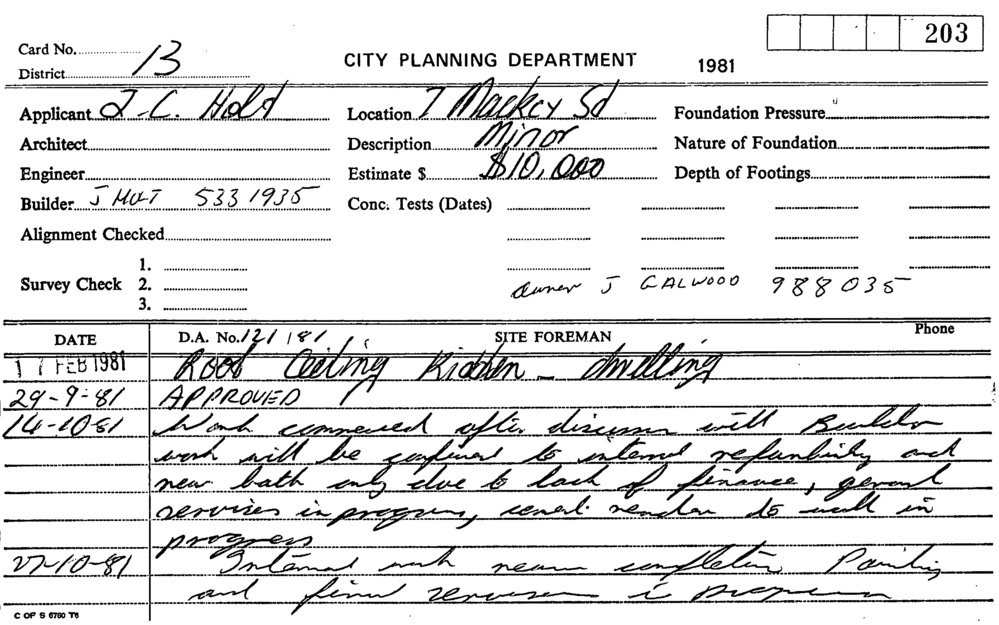 203
Card No.
District 13
CITY PLANNING DEPARTMENT
1981
Applicant J.C. Holt
Location 7 Mackey Sd
Foundation Pressure
Architect
Description Minor
Nature of Foundation
Engineer
Estimate $ $10,000
Depth of Footings
Builder J HOLT 533 1935
Conc. Tests (Dates)
Alignment Checked
Survey Check
1.
2.
3.
Owner J GALWOOD 988035
DATE
D.A. No. 121/81
SITE FOREMAN
Phone
17 FEB 1981 Roof Ceiling Kitchen - dwelling
29-9-81 APPROVED
14-10-81 Work commenced after discussion with Builder
work will be confined to internal refurbishing and
new bath only due to lack of finance, general
services in progress, cement render to wall in
progress
27-10-81 Internal work near completion Painting
and final services in progress
C OF S 6760 T6